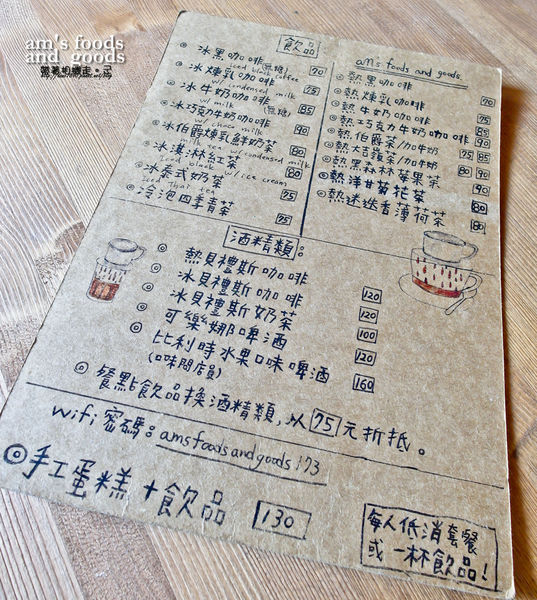 am's foods
and goods
飲品
冰黑咖啡(無糖) 70
iced black coffee
冰煉乳咖啡 75
w/ condensed milk
冰牛奶咖啡(無糖) 85
w/ milk
冰巧克力牛奶咖啡 90
w/ choco milk
冰伯爵煉乳鮮奶茶 80
milk tea w/ condensed milk
冰淇淋紅茶 80
iced tea w/ ice cream
冰泰式奶茶 75
Thai tea
冷泡四季青茶 75
am's foods and goods
熱黑咖啡 70
熱煉乳咖啡 75
熱牛奶咖啡 85
熱巧克力牛奶咖啡 90
熱伯爵茶/加牛奶 75 85
熱大吉嶺茶/加牛奶 80 90
熱黑森林莓果茶 90
熱洋甘菊花茶 80
熱迷迭香薄荷茶 80
酒精類:
熱貝禮斯咖啡 120
冰貝禮斯咖啡 120
冰貝禮斯奶茶 120
可樂娜啤酒 100
比利時水果口味啤酒 160
(口味問店員)
餐點飲品換酒精類,以75元折抵。
wifi密碼:amsfoodsandgoods173
手工蛋糕+飲品 130
每人低消套餐
或一杯飲品!